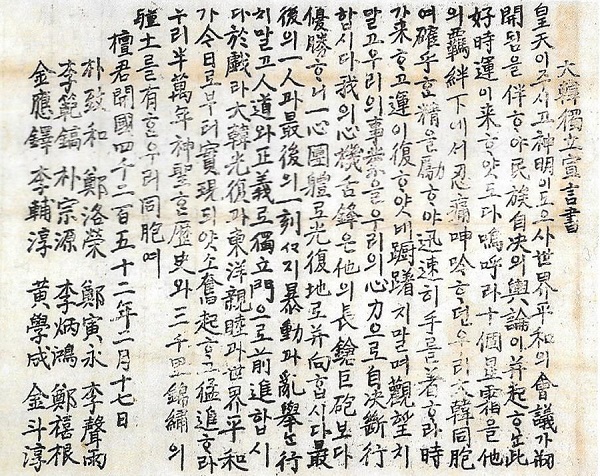 大韓獨立宣言書
皇天이주시고神明이도으사世界平和의會議가刱
開됨을伴ᄒᆞ야民族自决의輿論이并起ᄒᆞᄂᆞᆫ此
好時運이来ᄒᆞ얏도다嗚呼라十個星霜을他
의羈絆下에서忍痛呻吟ᄒᆞ던우리大韓同胞
여確乎ᄒᆞᆫ精을勵ᄒᆞ야迅速히手를着ᄒᆞ라時
가来ᄒᆞ고運이復ᄒᆞ얏네躕躇치말며觀望치
말고우리의事業을우리의心力으로自决斷行
합시다我의心機舌鋒은他의長鎗巨砲보다
優勝ᄒᆞ니一心團體로光復地로并向합시다最
後의一人과最後의一刻ᄭᅡ지暴動과亂擧는行
치말고人道와正義로獨立門으로前進합시
다於戱라大韓光復과東洋親睦과世界平和
가今日로부터實現되얏소奮起ᄒᆞ고猛進ᄒᆞ라
우리半萬年神聖ᄒᆞᆫ歷史와三千里錦繡의
疆土를有ᄒᆞᆫ우리同胞여
檀君開國四千二百五十二年二月十七日
朴致和 鄭洛榮 鄭寅永 李聲雨
李範鎬 朴宗源 李炳鴻 鄭禧根
金應鐸 李輔淳 黃學成 金斗淳